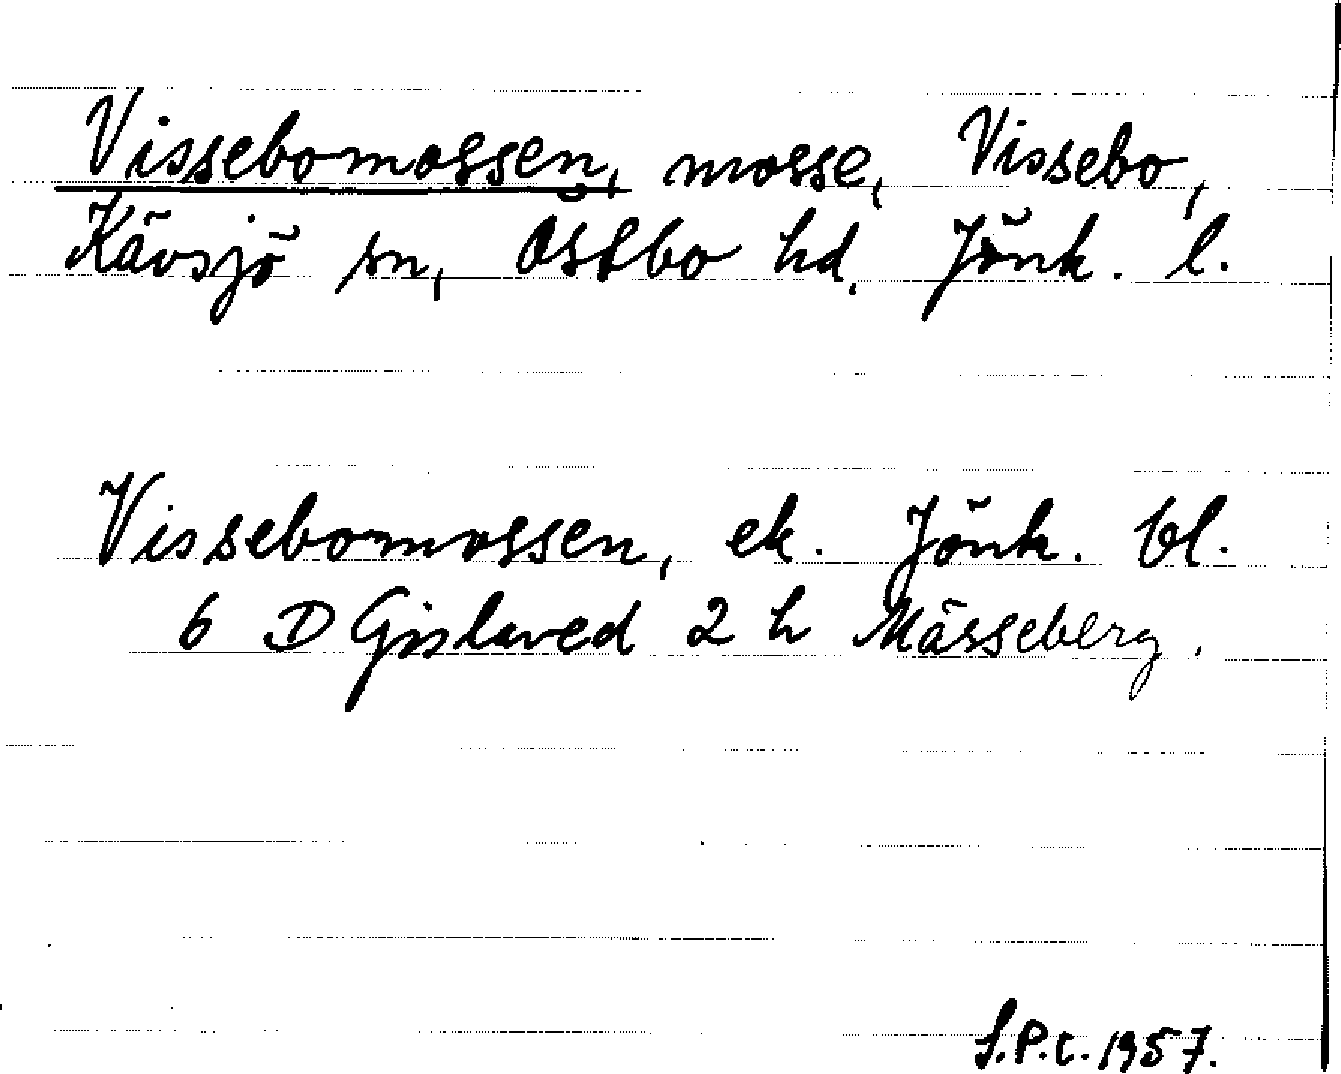 Vissebomossen, mosse, Vissebo,
Kävsjö sn, Östbo hd, Jönk. l.
Vissebomossen, ek. Jönk. bl.
6 D Gislaved 2 h Mässeberg.
S.P.t. 1957.